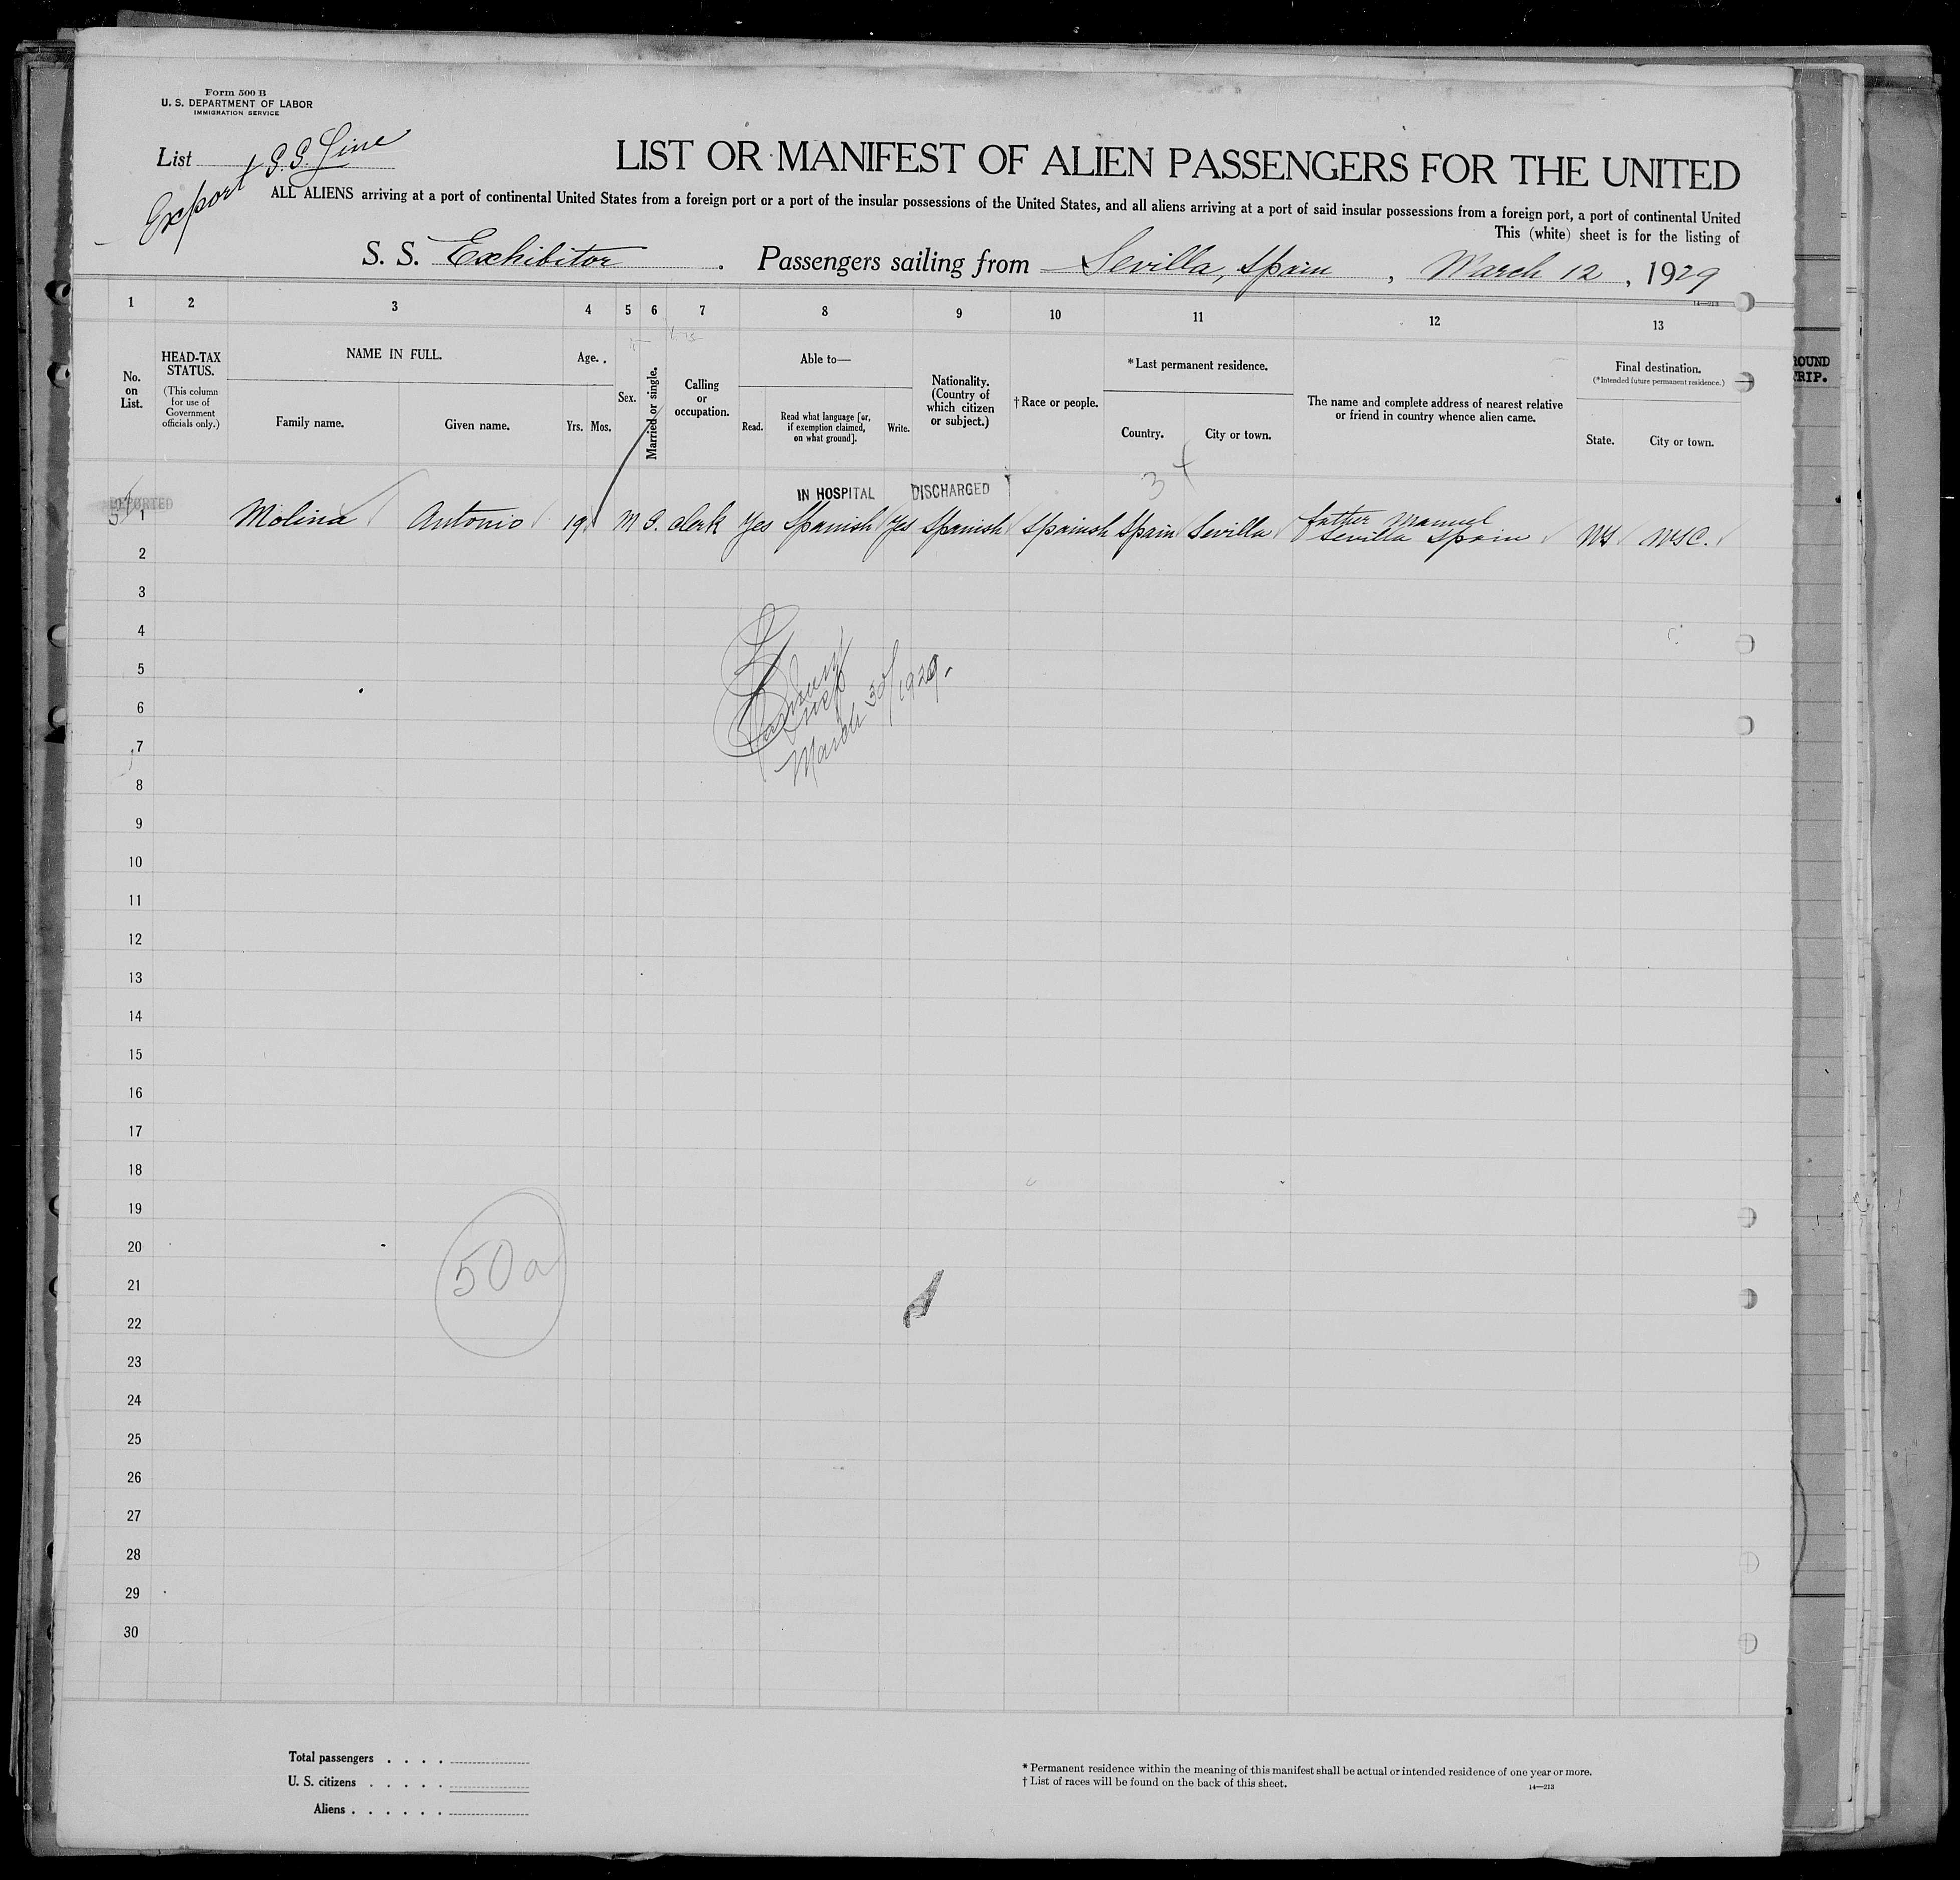 Form 500 B
U. S. DEPARTMENT OF LABOR
IMMIGRATION SERVICE
List
Export S.S. Line
LIST OR MANIFEST OF ALIEN PASSENGERS FOR THE UNITED
ALL ALIENS arriving at a port of continental United States from a foreign port or a port of the insular possessions of the United States, and all aliens arriving at a port of said insular possessions from a foreign port, a port of continental United
This (white) sheet is for the listing of
S. S. Exhibitor . Passengers sailing from Sevilla, Spain , March 12 , 1929
14—213
1 2 3 4 5 6 7 8 9 10 11 12 13
No. on List.
HEAD-TAX STATUS.
(This column for use of Government officials only.)
NAME IN FULL.
Family name. Given name.
Age.
Yrs. Mos.
Sex.
Married or single.
Calling or occupation.
Able to—
Read. Read what language [or, if exemption claimed, on what ground]. Write.
Nationality. (Country of which citizen or subject.)
†Race or people.
*Last permanent residence.
Country. City or town.
The name and complete address of nearest relative or friend in country whence alien came.
Final destination.
(*Intended future permanent residence.)
State. City or town.
ROUND
TRIP.
DEPORTED
IN HOSPITAL DISCHARGED
3
1 Molina Antonio 19 M S. Clerk Yes Spanish Yes Spanish Spanish Spain Sevilla father Manuel
Sevilla Spain NY NYC.
2
3
4
5
6
7
March 30/1929.
8
9
10
11
12
13
14
15
16
17
18
19
20
50a
21
22
23
24
25
26
27
28
29
30
Total passengers . . . .
U. S. citizens . . . . .
Aliens . . . . . .
* Permanent residence within the meaning of this manifest shall be actual or intended residence of one year or more.
† List of races will be found on the back of this sheet.
14—213